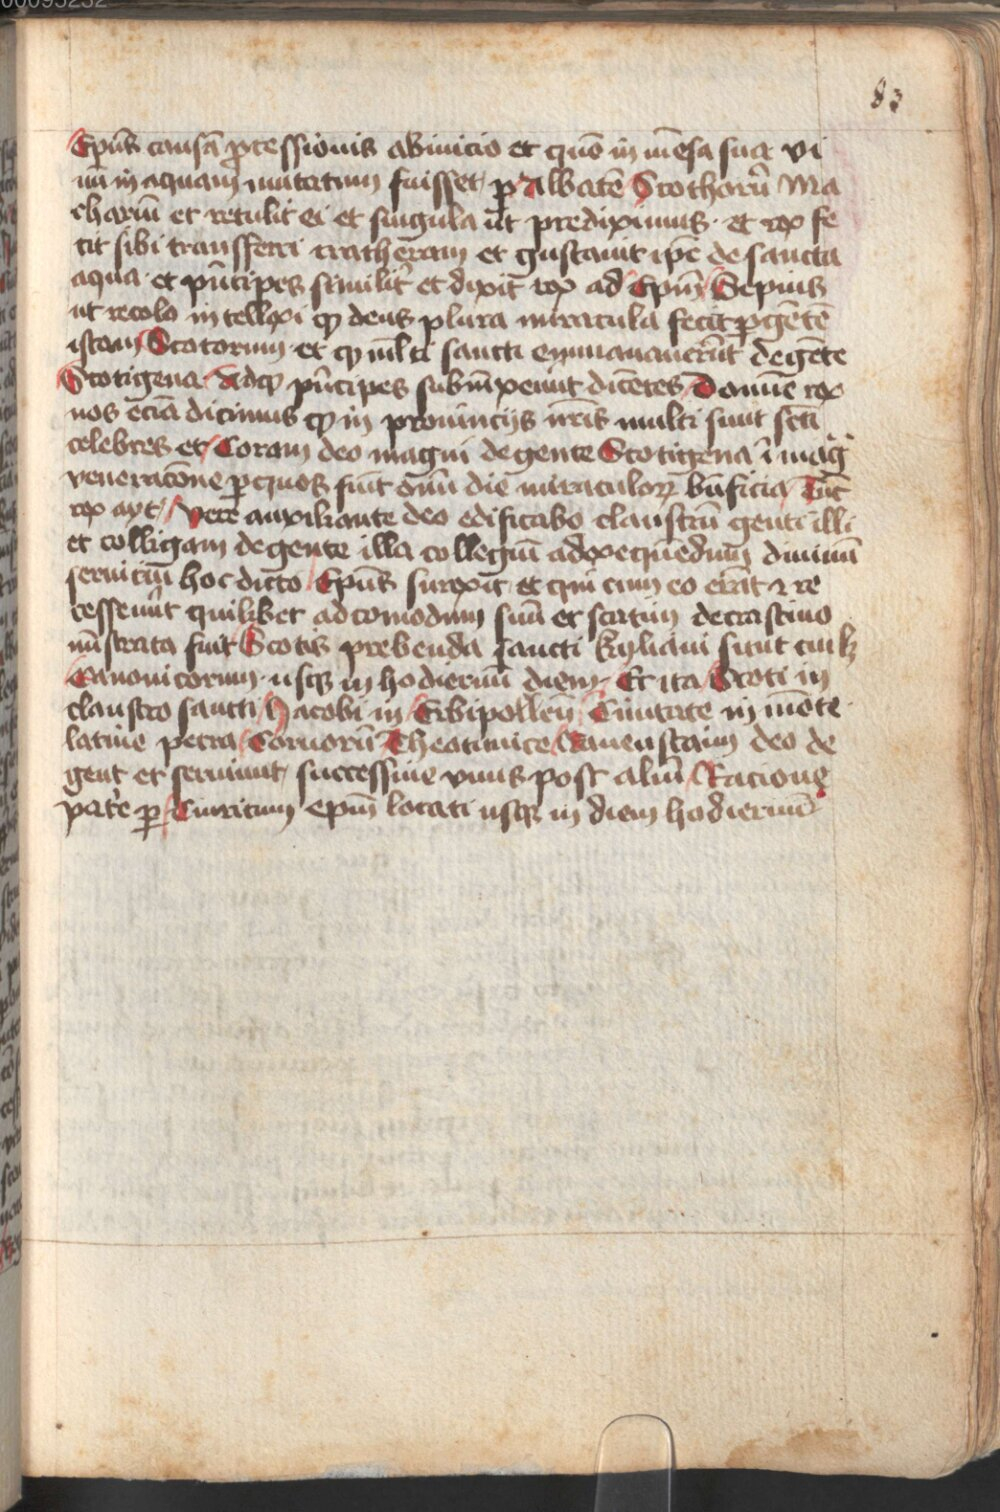 00095232
83
Epūs causā p̄cessionis abinicio et quō in mēsa sua vi
nū in aquam mutatum fuisset p̱ Abbatē Scothorū Ma
chariū et retulit ei et singula ut prediximus · et rex fe
cit sibi transferri catheram et gustauit ip̄e de sancta
aqua · et pn̄cipes similit̄ et dixit rex ad Epūm Sepius
ut recolo intellexi qꝫ deus plura miracula fecit p̱ gētē
istam Scotorum · et qꝫ ml̄ti sancti emanauerūt de gēte
Scotigena Adqꝫ pn̄cipes subīnxerūt dicētes Domīe rex
nos eciā dicimus qꝫ in prouincijs nr̄is multi sunt scti
celebres et Coram deo magni de gente Scotigena ī maḡ
veneracōne p̱ quos fiūt om̄i die miraculoꝝ bn̄ficia Tūc
rex ayt Vere auxiliante deo edificabo claustrū genti illi
et colligam de gente illa collegiū ad exequēdum diuinū
seruitiū hoc dicto Epūs surexit et qui cum eo erāt ⁊ re
cesserūt quilibet ad comodum suū et statim decrastino
mīstrata fuit Scotis prebenda sancti Kyliani sicut cuilꝫ
Canonicorum · usqꝫ in hodiernū diem Et ita Scoti in
claustro sancti Jacobi in Erbipolleñ Ciuitate in mōte
latine petra Coruorū Theotunice Rauenstaim deo de
gent et seruiunt successiue vnus post aliū Racione
parte p̱ Ciuricum epūm locati usqꝫ in diem hodiernū